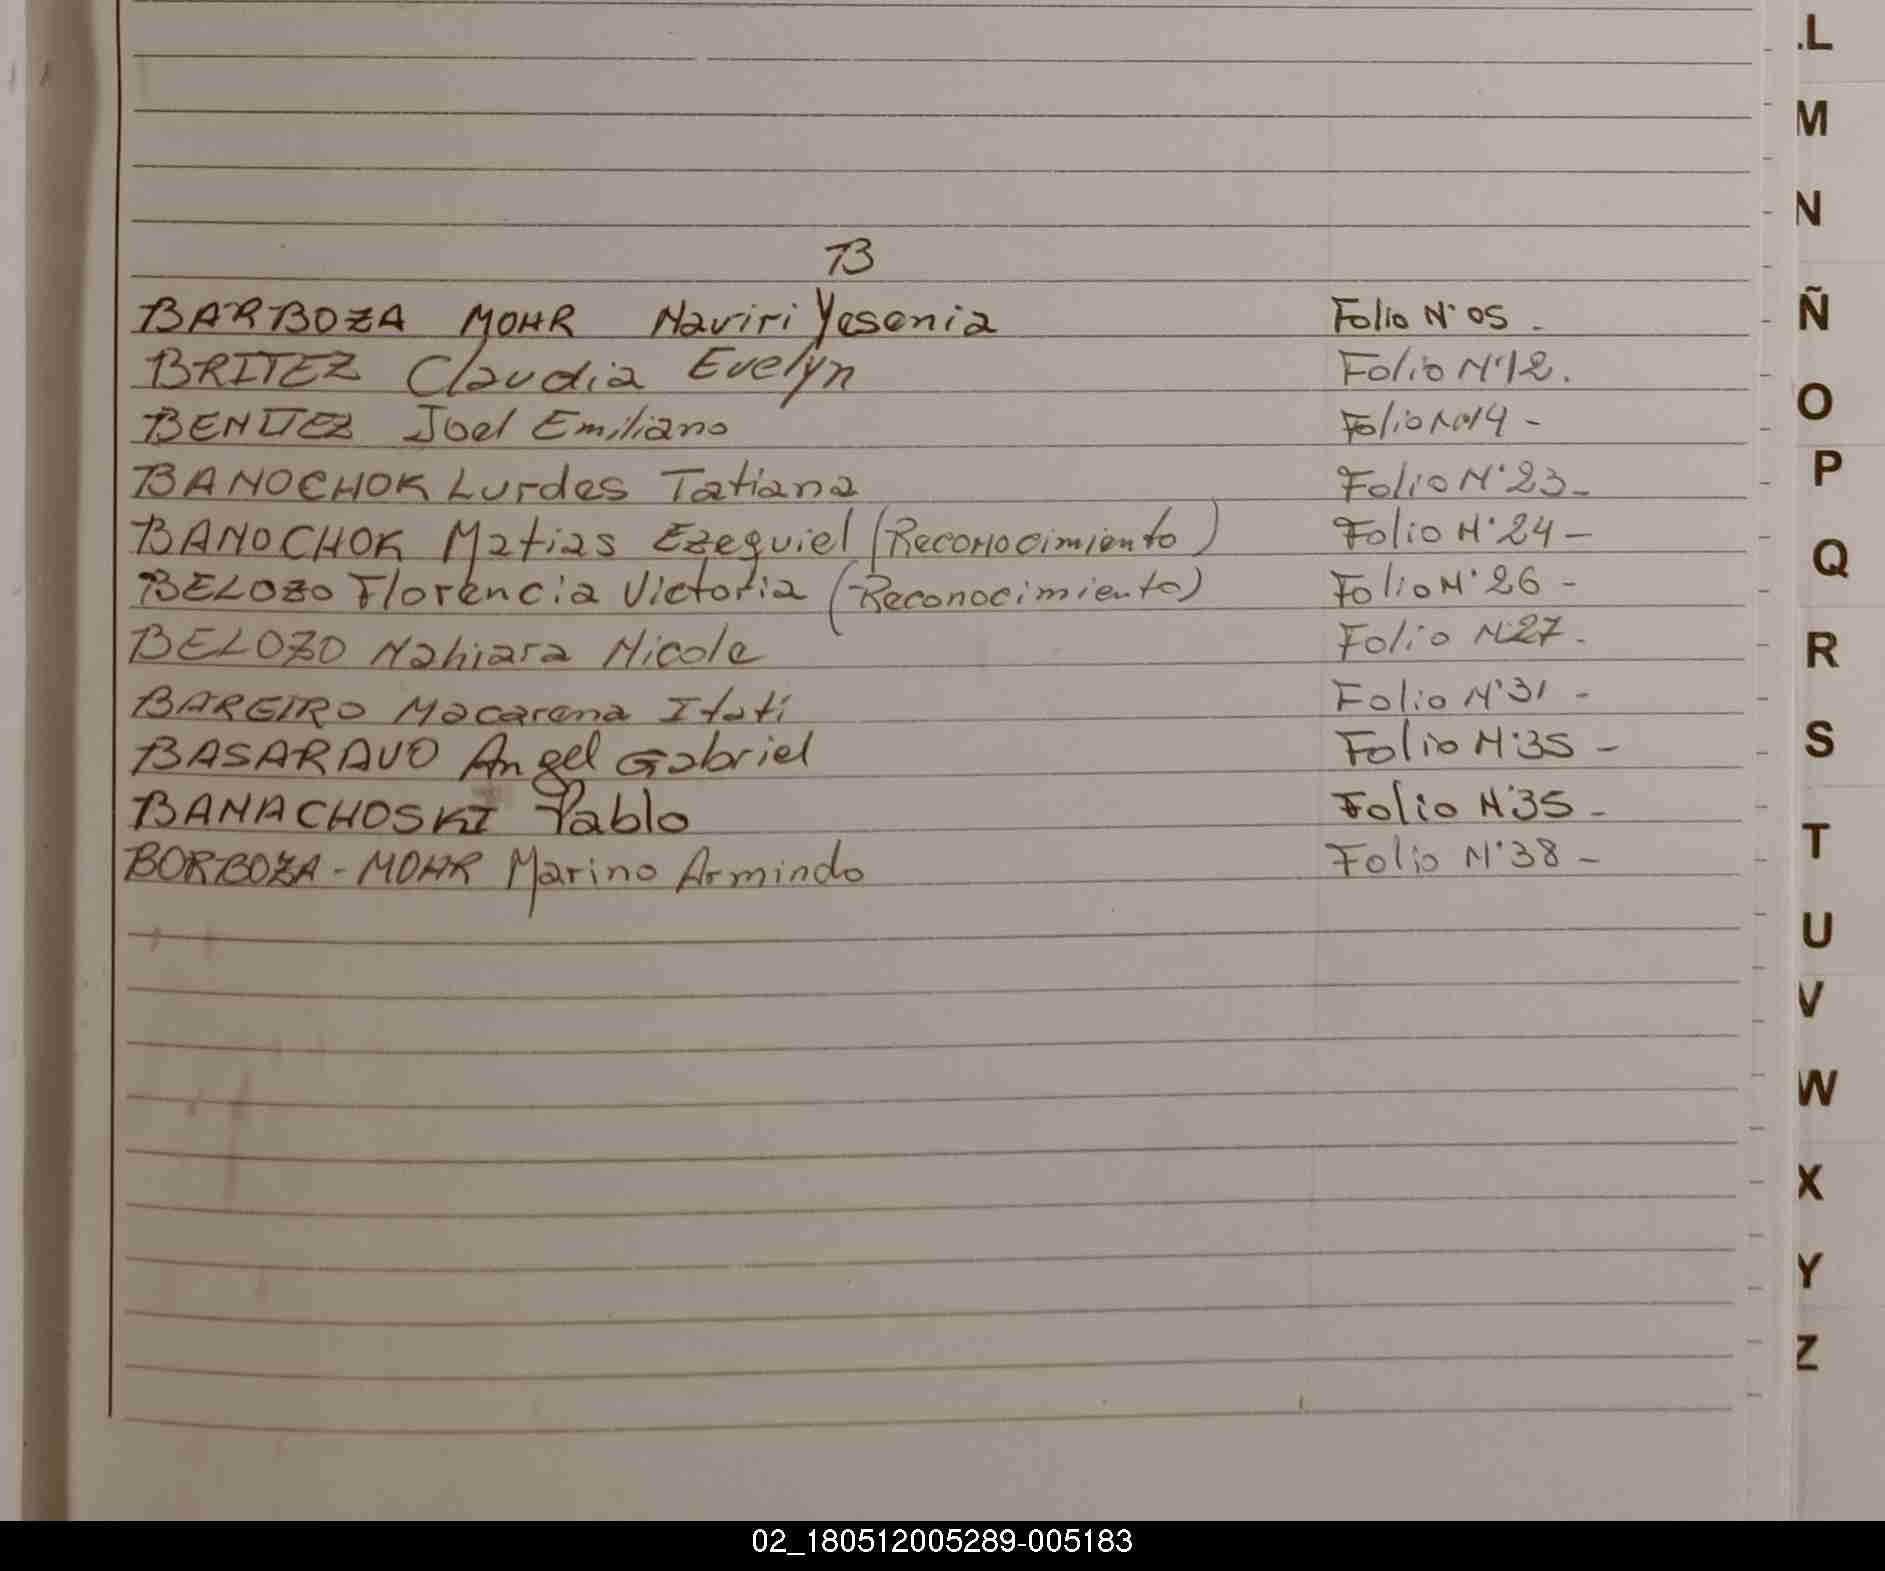 B
BARBOZA MOHR Naviri Yesenia Folio N° 05.
BRITEZ Claudia Evelyn Folio N°12.
BENITEZ Joel Emiliano Folio N°14 -
BANOCHOK Lurdes Tatiana Folio N°23-
BANOCHOK Matias Ezequiel (Reconocimiento) Folio N°24-
BELOZO Florencia Victoria (Reconocimiento) Folio N°26 -
BELOZO Nahiara Nicole Folio N°27.
BAREIRO Macarena Itati Folio N°31 -
BASARAVO Angel Gabriel Folio N°35 -
BANACHOSKI Pablo Folio N°35-
BORBOZA-MOHR Marino Armindo Folio N°38-
L
M
N
Ñ
O
P
Q
R
S
T
U
V
W
X
Y
Z
02_180512005289-005183